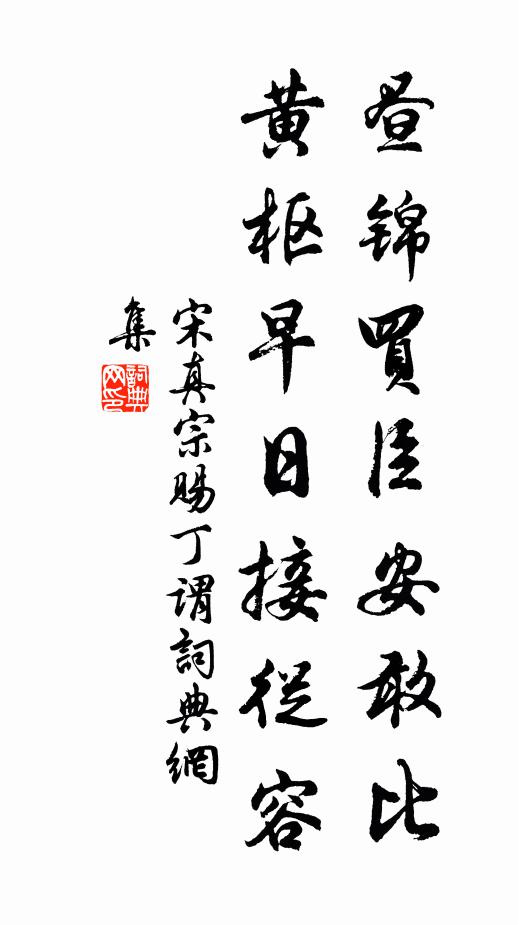 昼锦買臣安敢比
黄枢早日接從容
宋真宗賜丁谓詞典網
集
詞典
网印